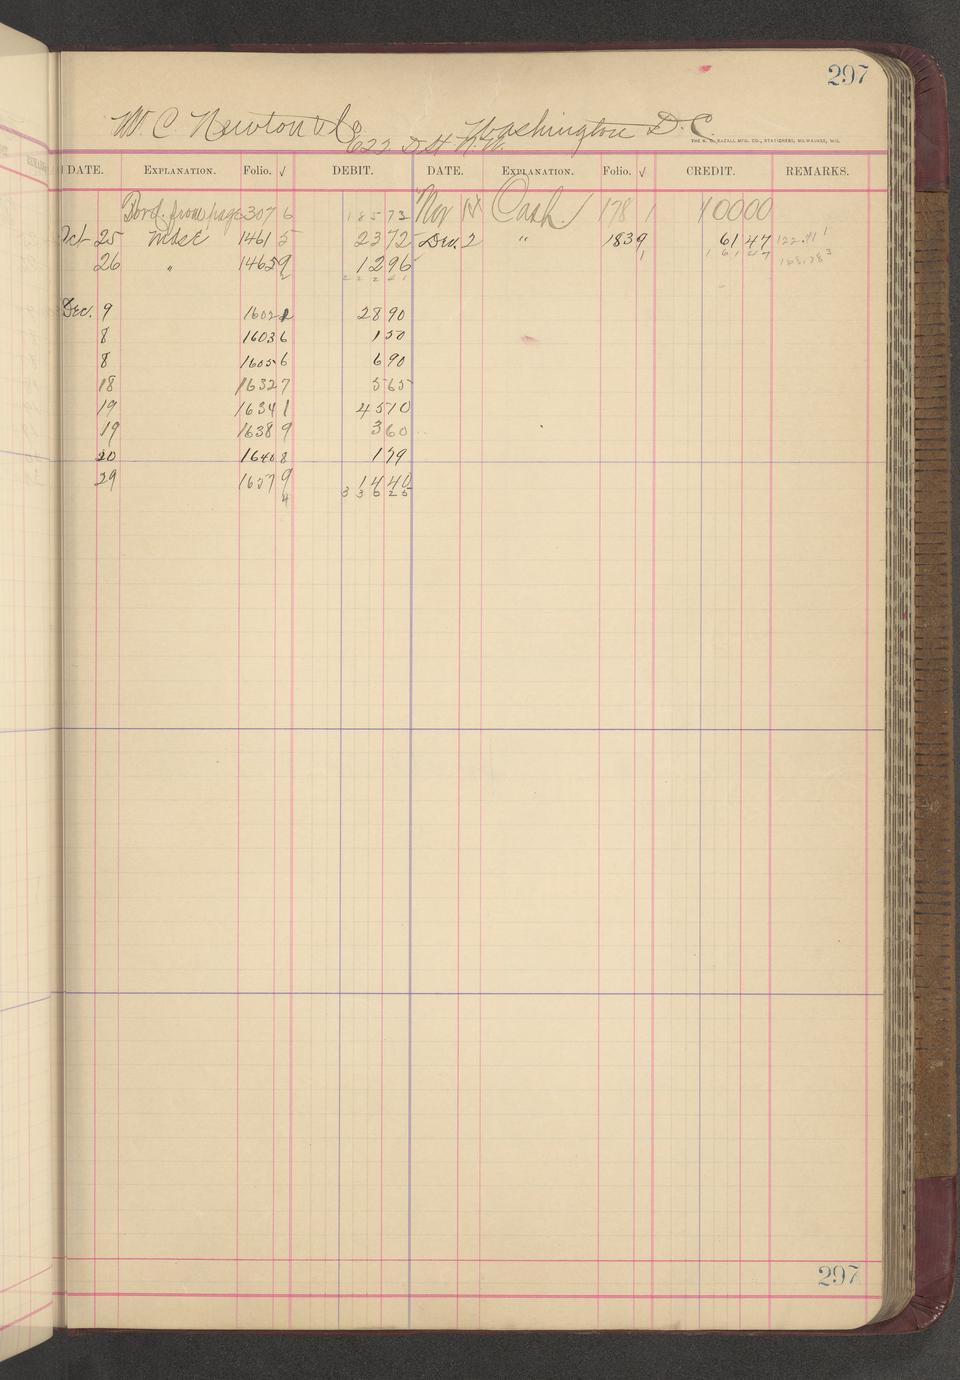 297
W. C. Newton & Co Washington D.C.
622 D St N.W.
THE H. G. RAZALL MFG. CO., STATIONERS, MILWAUKEE, WIS.
DATE. EXPLANATION. Folio. √ DEBIT. DATE. EXPLANATION. Folio. √ CREDIT. REMARKS.
Ford. from page 307 6 185 73 Nov 14 Cash 178 1 100 00
Oct 25 Mdse 1461 5 23 72 Dec. 2 " 183 9 61 47 122.91 1
26 " 1465 9 12 96 1 161 47
2 222 41
Dec. 9 1602 28 90
8 1603 6 1 50
8 1605 6 6 90
18 1632 7 5 65
19 1634 1 45 10
19 1638 9 3 60
20 1640 8 1 79
29 1657 9 14 40
4 336 25
297